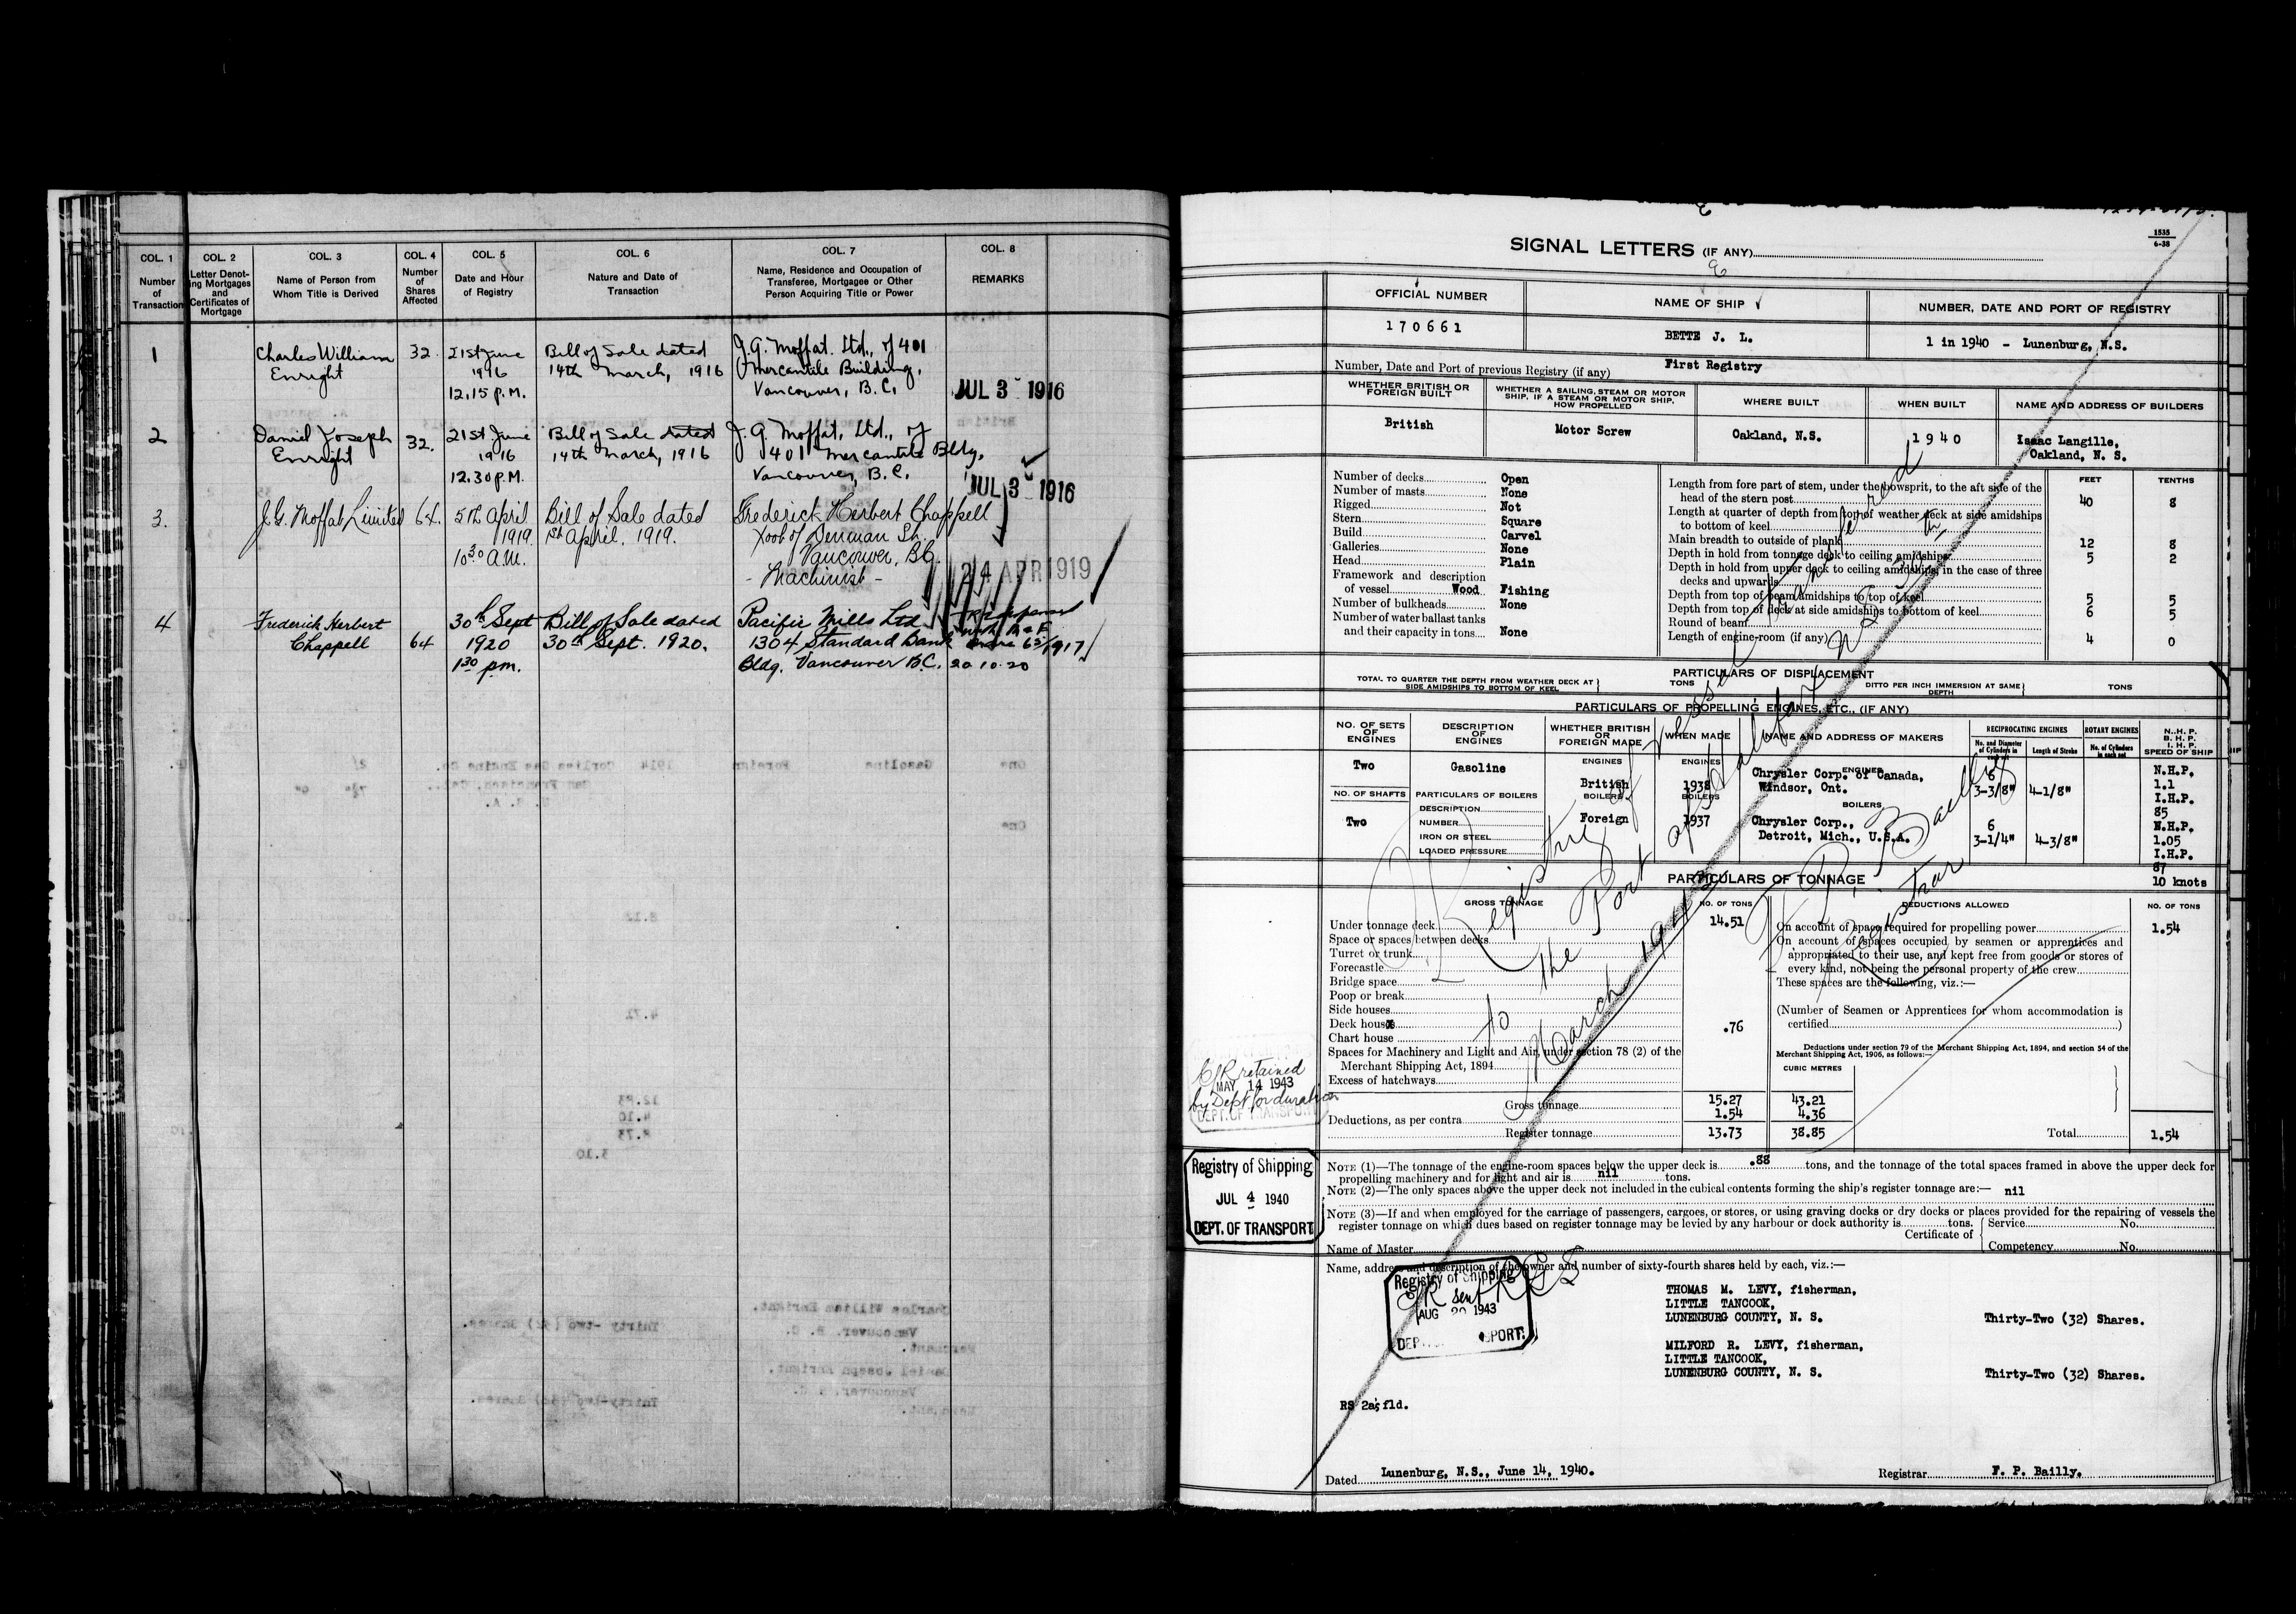 COL. 1
Number
of
Transaction
COL. 2
Letter Denot-
ing Mortgages
and
Certificates of
Mortgage
COL. 3
Name of Person from
Whom Title is Derived
COL. 4
Number
of
Shares
Affected
COL. 5
Date and Hour
of Registry
COL. 6
Nature and Date of
Transaction
COL. 7
Name, Residence and Occupation of
Transferee, Mortgagee or Other
Person Acquiring Title or Power
COL. 8
REMARKS
1
Charles William
Enright
32
21st June
1916
12.15 p.m.
Bill of Sale dated
14th March, 1916
J. G. Moffat. Ltd., of 401
Mercantile Building,
Vancouver, B.C.
JUL 3 1916
2
Daniel Joseph
Enright
32.
21st June
1916
12.30 p.m.
Bill of Sale dated
14th March, 1916
J. G. Moffat, Ltd., of
401 Mercantile Bldg.
Vancouver, B.C.
JUL 3 1916
3.
J.G. Moffat Limited
64.
5th April
1919.
10.30 a.m.
Bill of Sale dated
1st April. 1919.
Frederick Herbert Chappell
of Denman St.
Vancouver, B.C.
- Machinist -
24 APR 1919
4
Frederick Herbert
Chappell
64
30th Sept
1920
1.30 p.m.
Bill of Sale dated
30th Sept. 1920.
Pacific Mills Ltd
1304 Standard Bank
Bldg. Vancouver B.C.
1917
20.10.20
1535
6-38
SIGNAL LETTERS (IF ANY)
OFFICIAL NUMBER
170661
NAME OF SHIP
BETTE J. L.
NUMBER, DATE AND PORT OF REGISTRY
1 in 1940 - Lunenburg, N.S.
Number, Date and Port of previous Registry (if any) First Registry
WHETHER BRITISH OR
FOREIGN BUILT
British
WHETHER A SAILING, STEAM OR MOTOR
SHIP, IF A STEAM OR MOTOR SHIP,
HOW PROPELLED
Motor Screw
WHERE BUILT
Oakland, N.S.
WHEN BUILT
1940
NAME AND ADDRESS OF BUILDERS
Isaac Langille,
Oakland, N. S.
Number of decks Open
Number of masts None
Rigged Not
Stern Square
Build Carvel
Galleries None
Head Plain
Framework and description
of vessel Wood Fishing
Number of bulkheads None
Number of water ballast tanks
and their capacity in tons None
FEET TENTHS
Length from fore part of stem, under the bowsprit, to the aft side of the
head of the stern post 40 8
Length at quarter of depth from top of weather deck at side amidships
to bottom of keel
Main breadth to outside of plank 12 8
Depth in hold from tonnage deck to ceiling amidships 5 2
Depth in hold from upper deck to ceiling amidships, in the case of three
decks and upwards
Depth from top of beam amidships to top of keel 5 5
Depth from top of deck at side amidships to bottom of keel 6 5
Round of beam
Length of engine-room (if any) 4 0
PARTICULARS OF DISPLACEMENT
TOTAL TO QUARTER THE DEPTH FROM WEATHER DECK AT
SIDE AMIDSHIPS TO BOTTOM OF KEEL
TONS
DITTO PER INCH IMMERSION AT SAME
DEPTH
TONS
PARTICULARS OF PROPELLING ENGINES, ETC., (IF ANY)
NO. OF SETS
OF
ENGINES
Two
NO. OF SHAFTS
Two
DESCRIPTION
OF
ENGINES
Gasoline
PARTICULARS OF BOILERS
DESCRIPTION
NUMBER
IRON OR STEEL
LOADED PRESSURE
WHETHER BRITISH
OR
FOREIGN MADE
ENGINES
British
BOILERS
Foreign
WHEN MADE
ENGINES
1938
BOILERS
1937
NAME AND ADDRESS OF MAKERS
ENGINES
Chrysler Corp. of Canada,
Windsor, Ont.
BOILERS
Chrysler Corp.,
Detroit, Mich., U.S.A.
RECIPROCATING ENGINES
No. and Diameter
of Cylinders in
each set
Length of Stroke
6
3-3/8" 4-1/8"
6
3-1/4" 4-3/8"
ROTARY ENGINES
No. of Cylinders
in each set
N.H.P.
B.H.P.
I.H.P.
SPEED OF SHIP
N.H.P.
1.1
I.H.P.
85
N.H.P.
1.05
I.H.P.
87
10 knots
PARTICULARS OF TONNAGE
GROSS TONNAGE NO. OF TONS
Under tonnage deck 14.51
Space or spaces between decks
Turret or trunk
Forecastle
Bridge space
Poop or break
Side houses
Deck house .76
Chart house
Spaces for Machinery and Light and Air, under section 78 (2) of the
Merchant Shipping Act, 1894
Excess of hatchways
CUBIC METRES
Gross tonnage 15.27 43.21
Deductions, as per contra 1.54 4.36
Register tonnage 13.73 38.85
DEDUCTIONS ALLOWED NO. OF TONS
On account of space required for propelling power 1.54
On account of spaces occupied by seamen or apprentices and
appropriated to their use, and kept free from goods or stores of
every kind, not being the personal property of the crew
These spaces are the following, viz.:—
(Number of Seamen or Apprentices for whom accommodation is
certified )
Deductions under section 79 of the Merchant Shipping Act, 1894, and section 54 of the
Merchant Shipping Act, 1906, as follows:—
Total 1.54
Registry of Vessel Transferred
to the Port of Halifax N.S.
March 1943
F. P. Bailly
Registrar
C/R retained
MAY 14 1943
by Dept for duration
DEPT. OF TRANSPORT
Registry of Shipping
JUL 4 1940
DEPT. OF TRANSPORT
NOTE (1)—The tonnage of the engine-room spaces below the upper deck is .88 tons, and the tonnage of the total spaces framed in above the upper deck for
propelling machinery and for light and air is nil tons.
NOTE (2)—The only spaces above the upper deck not included in the cubical contents forming the ship's register tonnage are:— nil
NOTE (3)—If and when employed for the carriage of passengers, cargoes, or stores, or using graving docks or dry docks or places provided for the repairing of vessels the
register tonnage on which dues based on register tonnage may be levied by any harbour or dock authority is tons.
Certificate of
Service No.
Competency No.
Name of Master
Name, address and description of the owner and number of sixty-fourth shares held by each, viz.:—
Registry of Shipping
C/R sent RGS
AUG 20 1943
THOMAS M. LEVY, fisherman,
LITTLE TANCOOK,
LUNENBURG COUNTY, N. S. Thirty-Two (32) Shares.
MILFORD R. LEVY, fisherman,
LITTLE TANCOOK,
LUNENBURG COUNTY, N. S. Thirty-Two (32) Shares.
RS 2a; fld.
Dated Lunenburg, N.S., June 14, 1940.
Registrar F. P. Bailly.